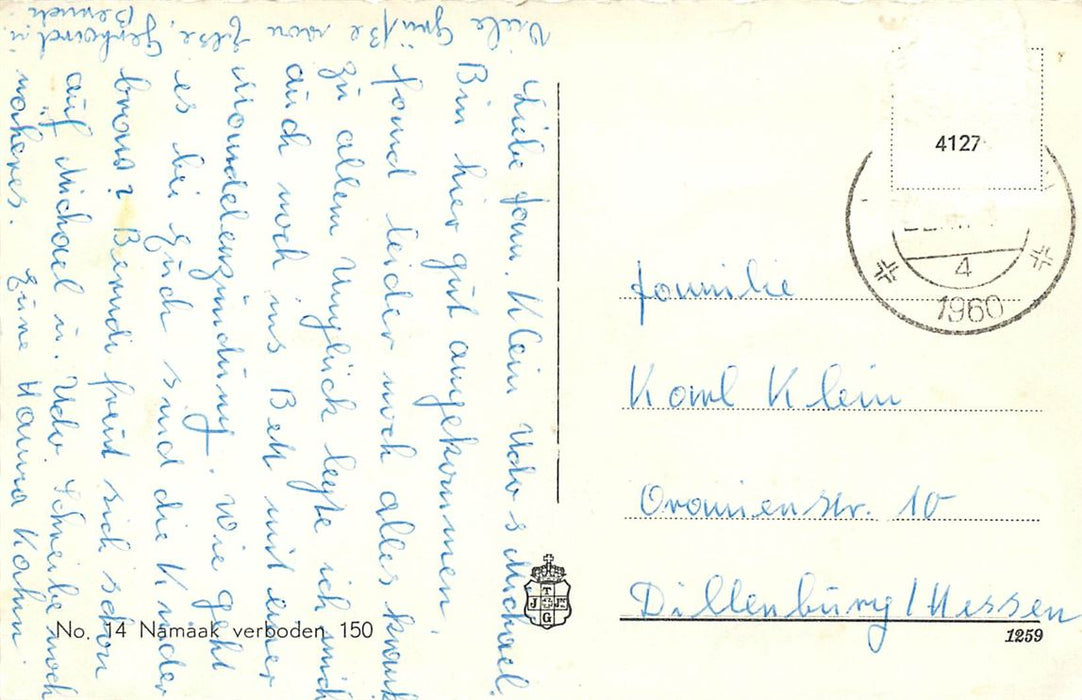 Liebe Fam. Klein Udo s Michael.
Bin hier gut angekommen,
fand leider noch alles krank
zu allem Unglück legte ich mich
auch noch ins Bett mit einer
Mandelenzündung. Wie geht
es bei Euch sind die Kinder
brav? Berndi freut sich schon
auf Michael u. Udo. Schreibe noch
näheres. Eure Hanna Kahn.
Viele Grüße von Ilse, Gerhard u.
Berndi
4127
4
1960
Familie
Karl Klein
Oranienstr. 10
Dillenburg / Hessen
1259
No. 14 Namaak verboden 150
T
J Jzn
G